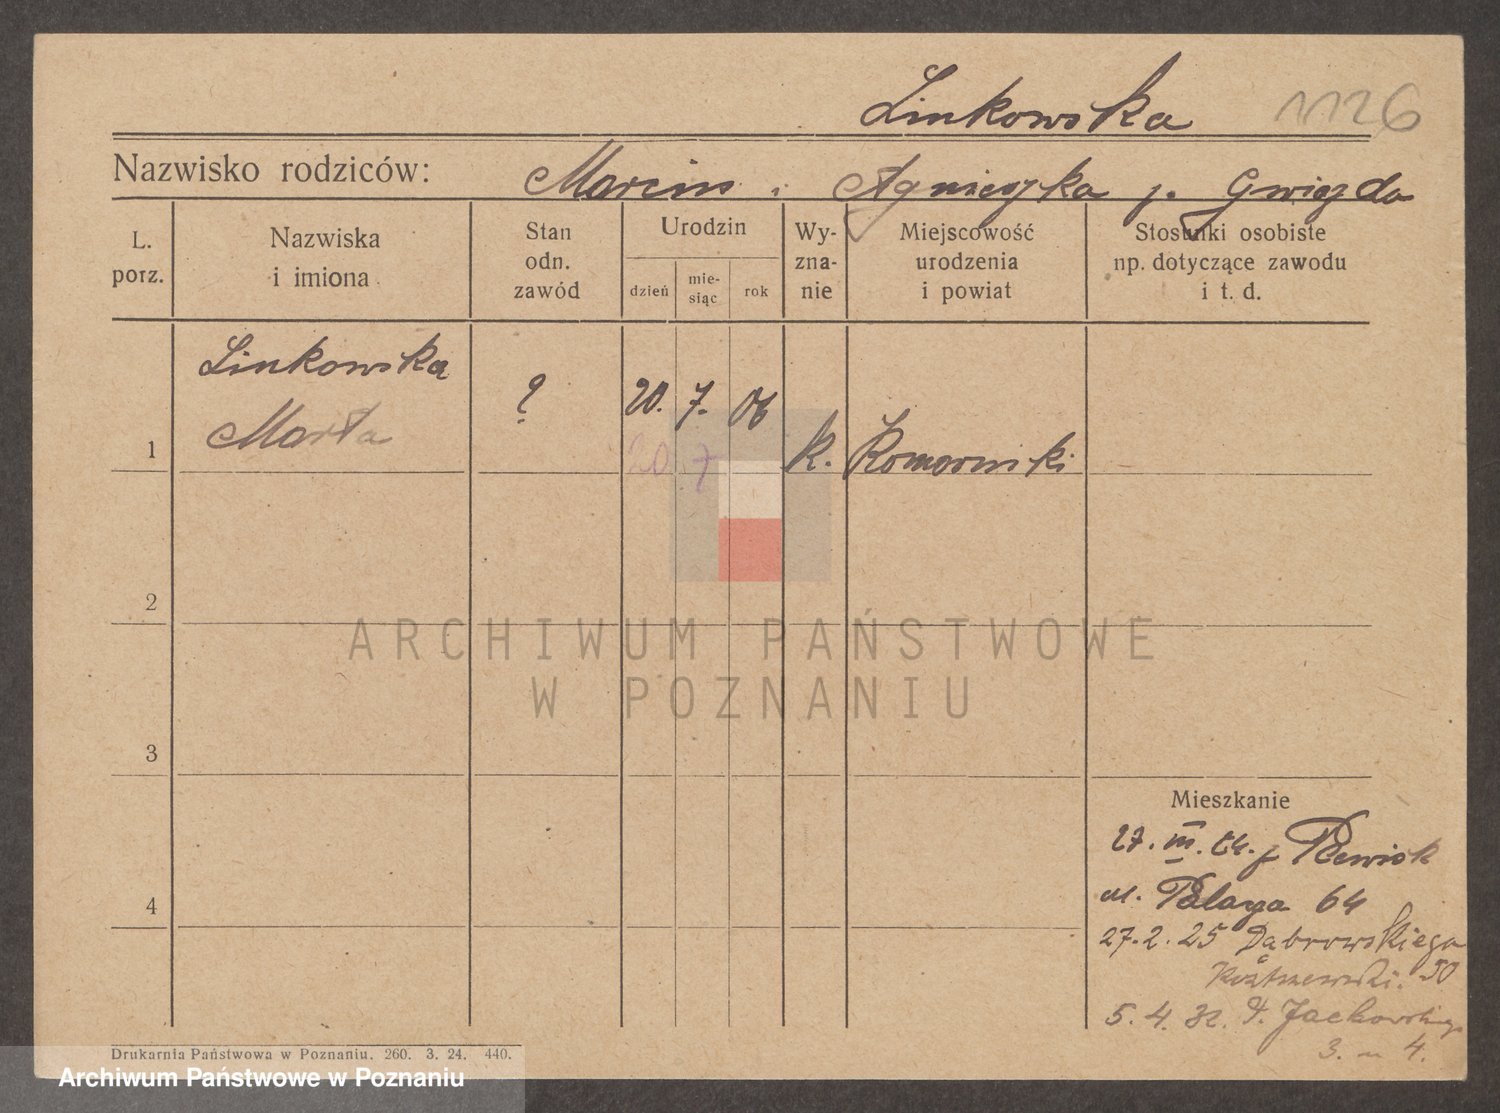 Linkowska 1126
Nazwisko rodziców: Marcin i Agnieszka z. Gwiazda
L. porz.
Nazwiska i imiona
Stan odn. zawód
Urodzin
dzień
mie-
siąc
rok
Wy-
zna-
nie
Miejscowość
urodzenia
i powiat
Stosunki osobiste
np. dotyczące zawodu
i t. d.
Linkowska
Marta
? 20. 7. 06
20 7
1 k. Komorniki
2
3
4
Mieszkanie
27. III. 24. z Plewisk
ul. Polna 64
27. 2. 25 Dąbrowskiego
50
5. 4. 32. P. Jackowskiego
3. m 4.
Drukarnia Państwowa w Poznaniu. 260. 3. 24. 440.
ARCHIWUM PAŃSTWOWE
W POZNANIU
Archiwum Państwowe w Poznaniu